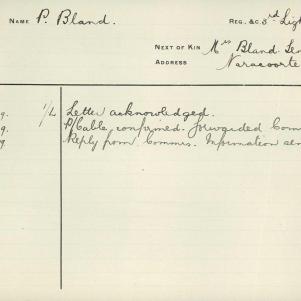 NAME P. Bland. REG. &C. 3rd Lig
NEXT OF KIN Mrs Bland Sen
ADDRESS Naracoorte
9. 1/L Letter acknowledged.
9. P/Cable confirmed. Forwarded Com
9 Reply from Commis. Information sen